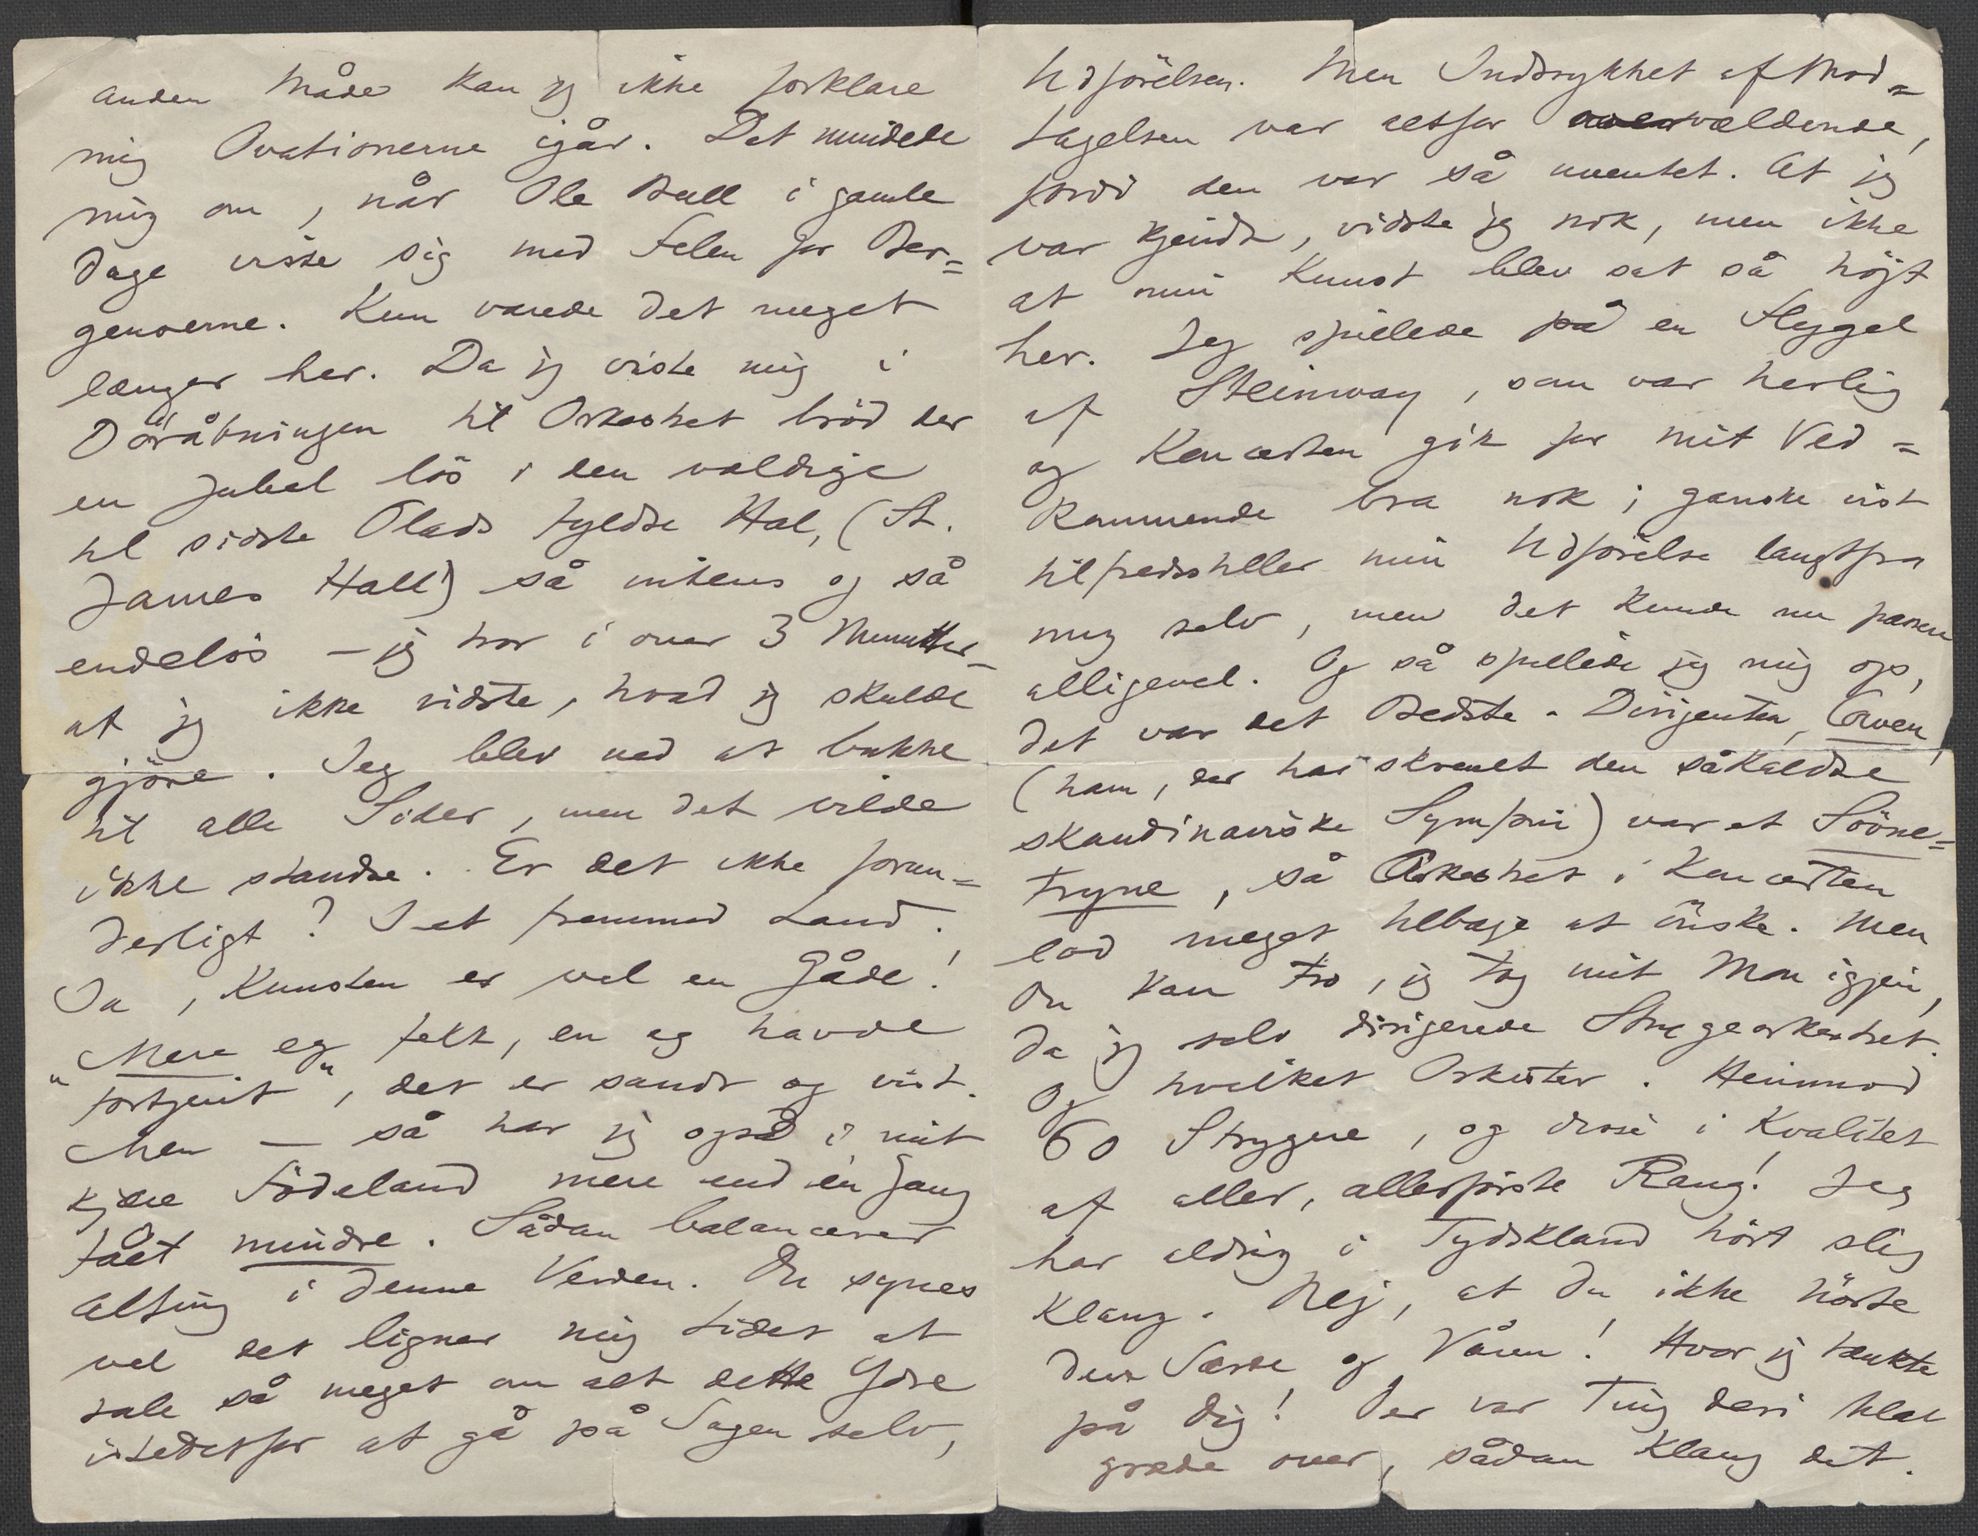 anden Måde kan jeg ikke forklare
mig Ovationerne igår. Det mindede
mig om, når Ole Bull i gamle
Dage viste sig med Felen for Ber=
genserne. Kun varede det meget
længer her. Da jeg viste mig i
Döråbningen til Orkestret bröd der
en Jubel lös i den vældige
til sidste Plads fyldte Hal, (St.
James Hall) så intens og så
endelös – jeg tror i over 3 Minutter –
at jeg ikke vidste, hvad jeg skulde
gjöre. Jeg blev ved at bukke
til alle Sider, men det vilde
ikke standse. Er det ikke forun=
derligt? I et fremmed Land.
Ja, Kunsten er vel en Gåde!
Mere eg fekk, en eg havde
"fortjent", det er sandt og vist.
Men – så har jeg også i mit
kjære Födeland mere end én Gang
fået mindre. Sådan balancerer
Alting i denne Verden. Du synes
vel det ligner mig lidet at
tale så meget om alt dette Ydre
istedetfor at gå på Sagen selv,
Udförelsen. Men Indtrykket af Mod=
tagelsen var altfor overvældende,
fordi den var så uventet. At jeg
var kjendt, vidste jeg nok, men ikke
at min Kunst blev sat så höjt
her. Jeg spillede på en Flygel
af Steinway, som var herlig
og Koncerten gik for mit Ved=
kommende bra nok; ganske vist
tilfredsstiller min Udförelse langtfra
mig selv, men det kunde nu passere
alligevel. Og så spillede jeg mig op,
det var det Bedste. Dirigenten, Cowen,
(ham, der har skrevet den såkaldte
skandinaviske Symfoni) var et Svöne=
tryne, så Orkestret i Koncerten
lod meget tilbage at önske. Men
Du kan tro, jeg tog mit Mon igjen,
da jeg selv dirigerede Strygeorkestret.
Og hvilket Orkester. Henimod
60 Strygere, og disse i Kvalitet
af aller, allerförste Rang! Jeg
har aldrig i Tydskland hört slig
Klang. Nej, at Du ikke hörte
Den Særde og Våren! Hvor jeg tænkte
på Dig! Der var Ting deri til at
græde over, sådan klang det.